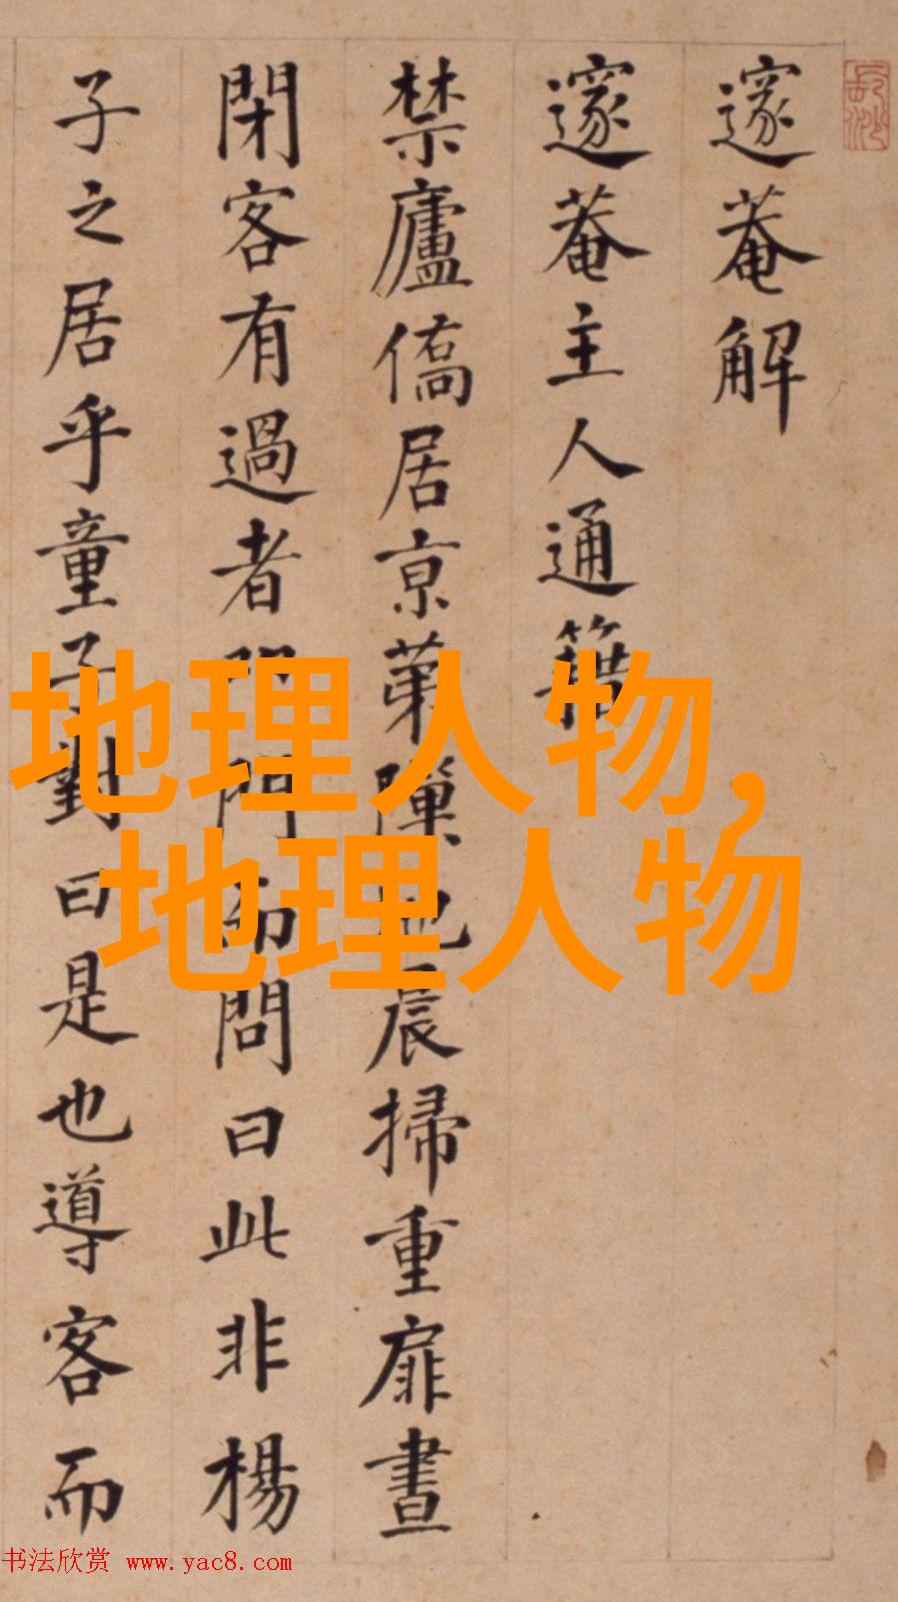 邃菴解
邃菴主人通籍
禁廬僑居京苐隟也晨掃重扉晝
閉客有過者門而問曰此非楊
子之居乎童子對曰是也導客而
地理人物,
地理人物
书法欣赏 www.yac8.com